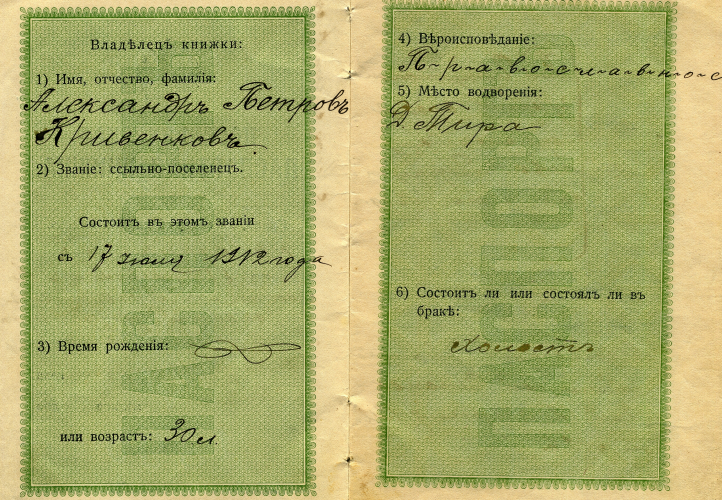 Владѣлецъ книжки:
1) Имя, отчество, фамилія:
Александръ Петровъ
Кривенковъ
2) Званіе: ссыльно-поселенецъ.
Состоитъ въ этомъ званіи
съ 17 іюля 1912 года
3) Время рожденія:
или возрастъ: 30 л.
4) Вѣроисповѣданіе:
П-р-а-в-о-с-л-а-в-н-о-с
5) Мѣсто водворенія:
Д. Тира
6) Состоитъ ли или состоялъ ли въ
бракѣ:
Холостъ
ПАСПОРТЪ